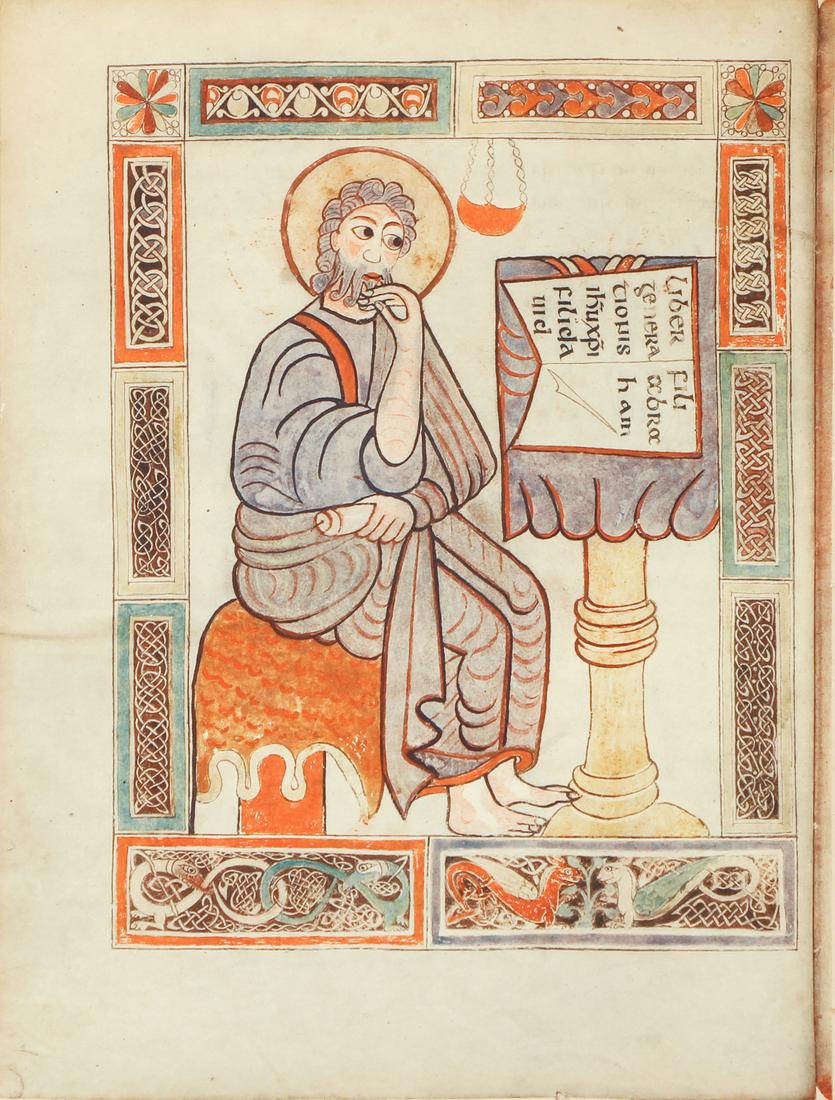 Liber
genera
tionis
ihuxpi
filida
uid
fili
abra
ham